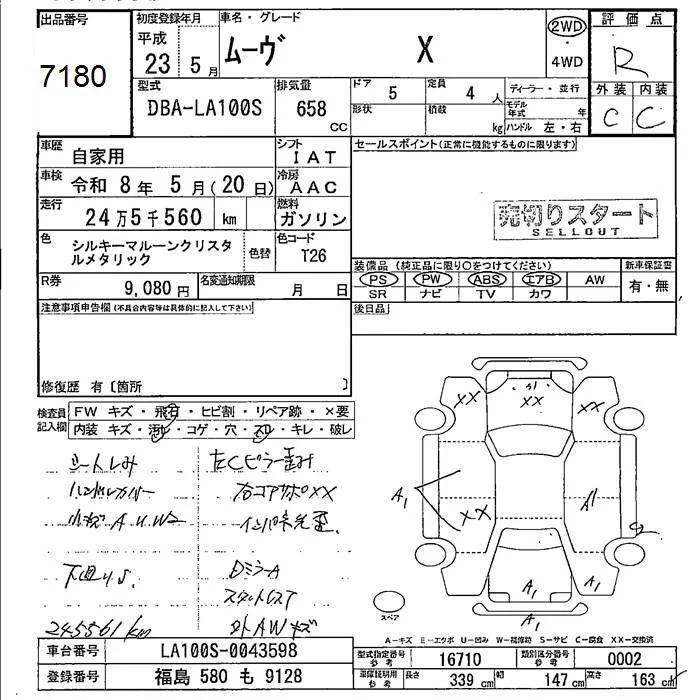 出品番号
7180
初度登録年月
平成
23 5 月
車名・グレード
ムーヴ X
2WD
・
4WD
評価点
R
外装 内装
C C
型式
DBA-LA100S
排気量
658
CC
ドア 5
定員 4 人
形状
積載 kg
ディーラー・並行
モデル年式 年
ハンドル 左・右
車歴 自家用
シフト IAT
車検 令和 8 年 5 月(20 日)
冷房 AAC
走行 24万5千560 km
燃料 ガソリン
色 シルキーマルーンクリスタルメタリック
色替
色コード T26
R券 9,080 円
名変通知期限 月 日
セールスポイント(正常に機能するものに限ります)
売切りスタート
SELLOUT
装備品(純正品に限り〇をつけてください)
PS PW ABS エアB AW
SR ナビ TV カワ
新車保証書
有・無
注意事項申告欄(不具合内容等は具体的に記入して下さい)
後日品
修復歴 有〔箇所 〕
検査員記入欄
FW キズ・飛石・ヒビ割・リペア跡・×要
内装 キズ・汚れ・コゲ・穴・スレ・キレ・破レ
シートしみ
左Cピラー歪み
ハンドルカバー
右コアサポXX
小キズ A U W2
下廻りS.
DミラーA
スタットレス7
245561km
外AWキズ
XX
XX
XX
A1
XX
A1
A1
A1
A1
スペア
A-キズ E-エクボ U-凹み W-補修跡 S-サビ C-腐食 XX-交換済
車台番号 LA100S-0043598
登録番号 福島 580 も 9128
型式指定番号 参考 16710
類別区分番号 参考 0002
車庫証明用 参考 長さ 339 cm 幅 147 cm 高さ 163 cm